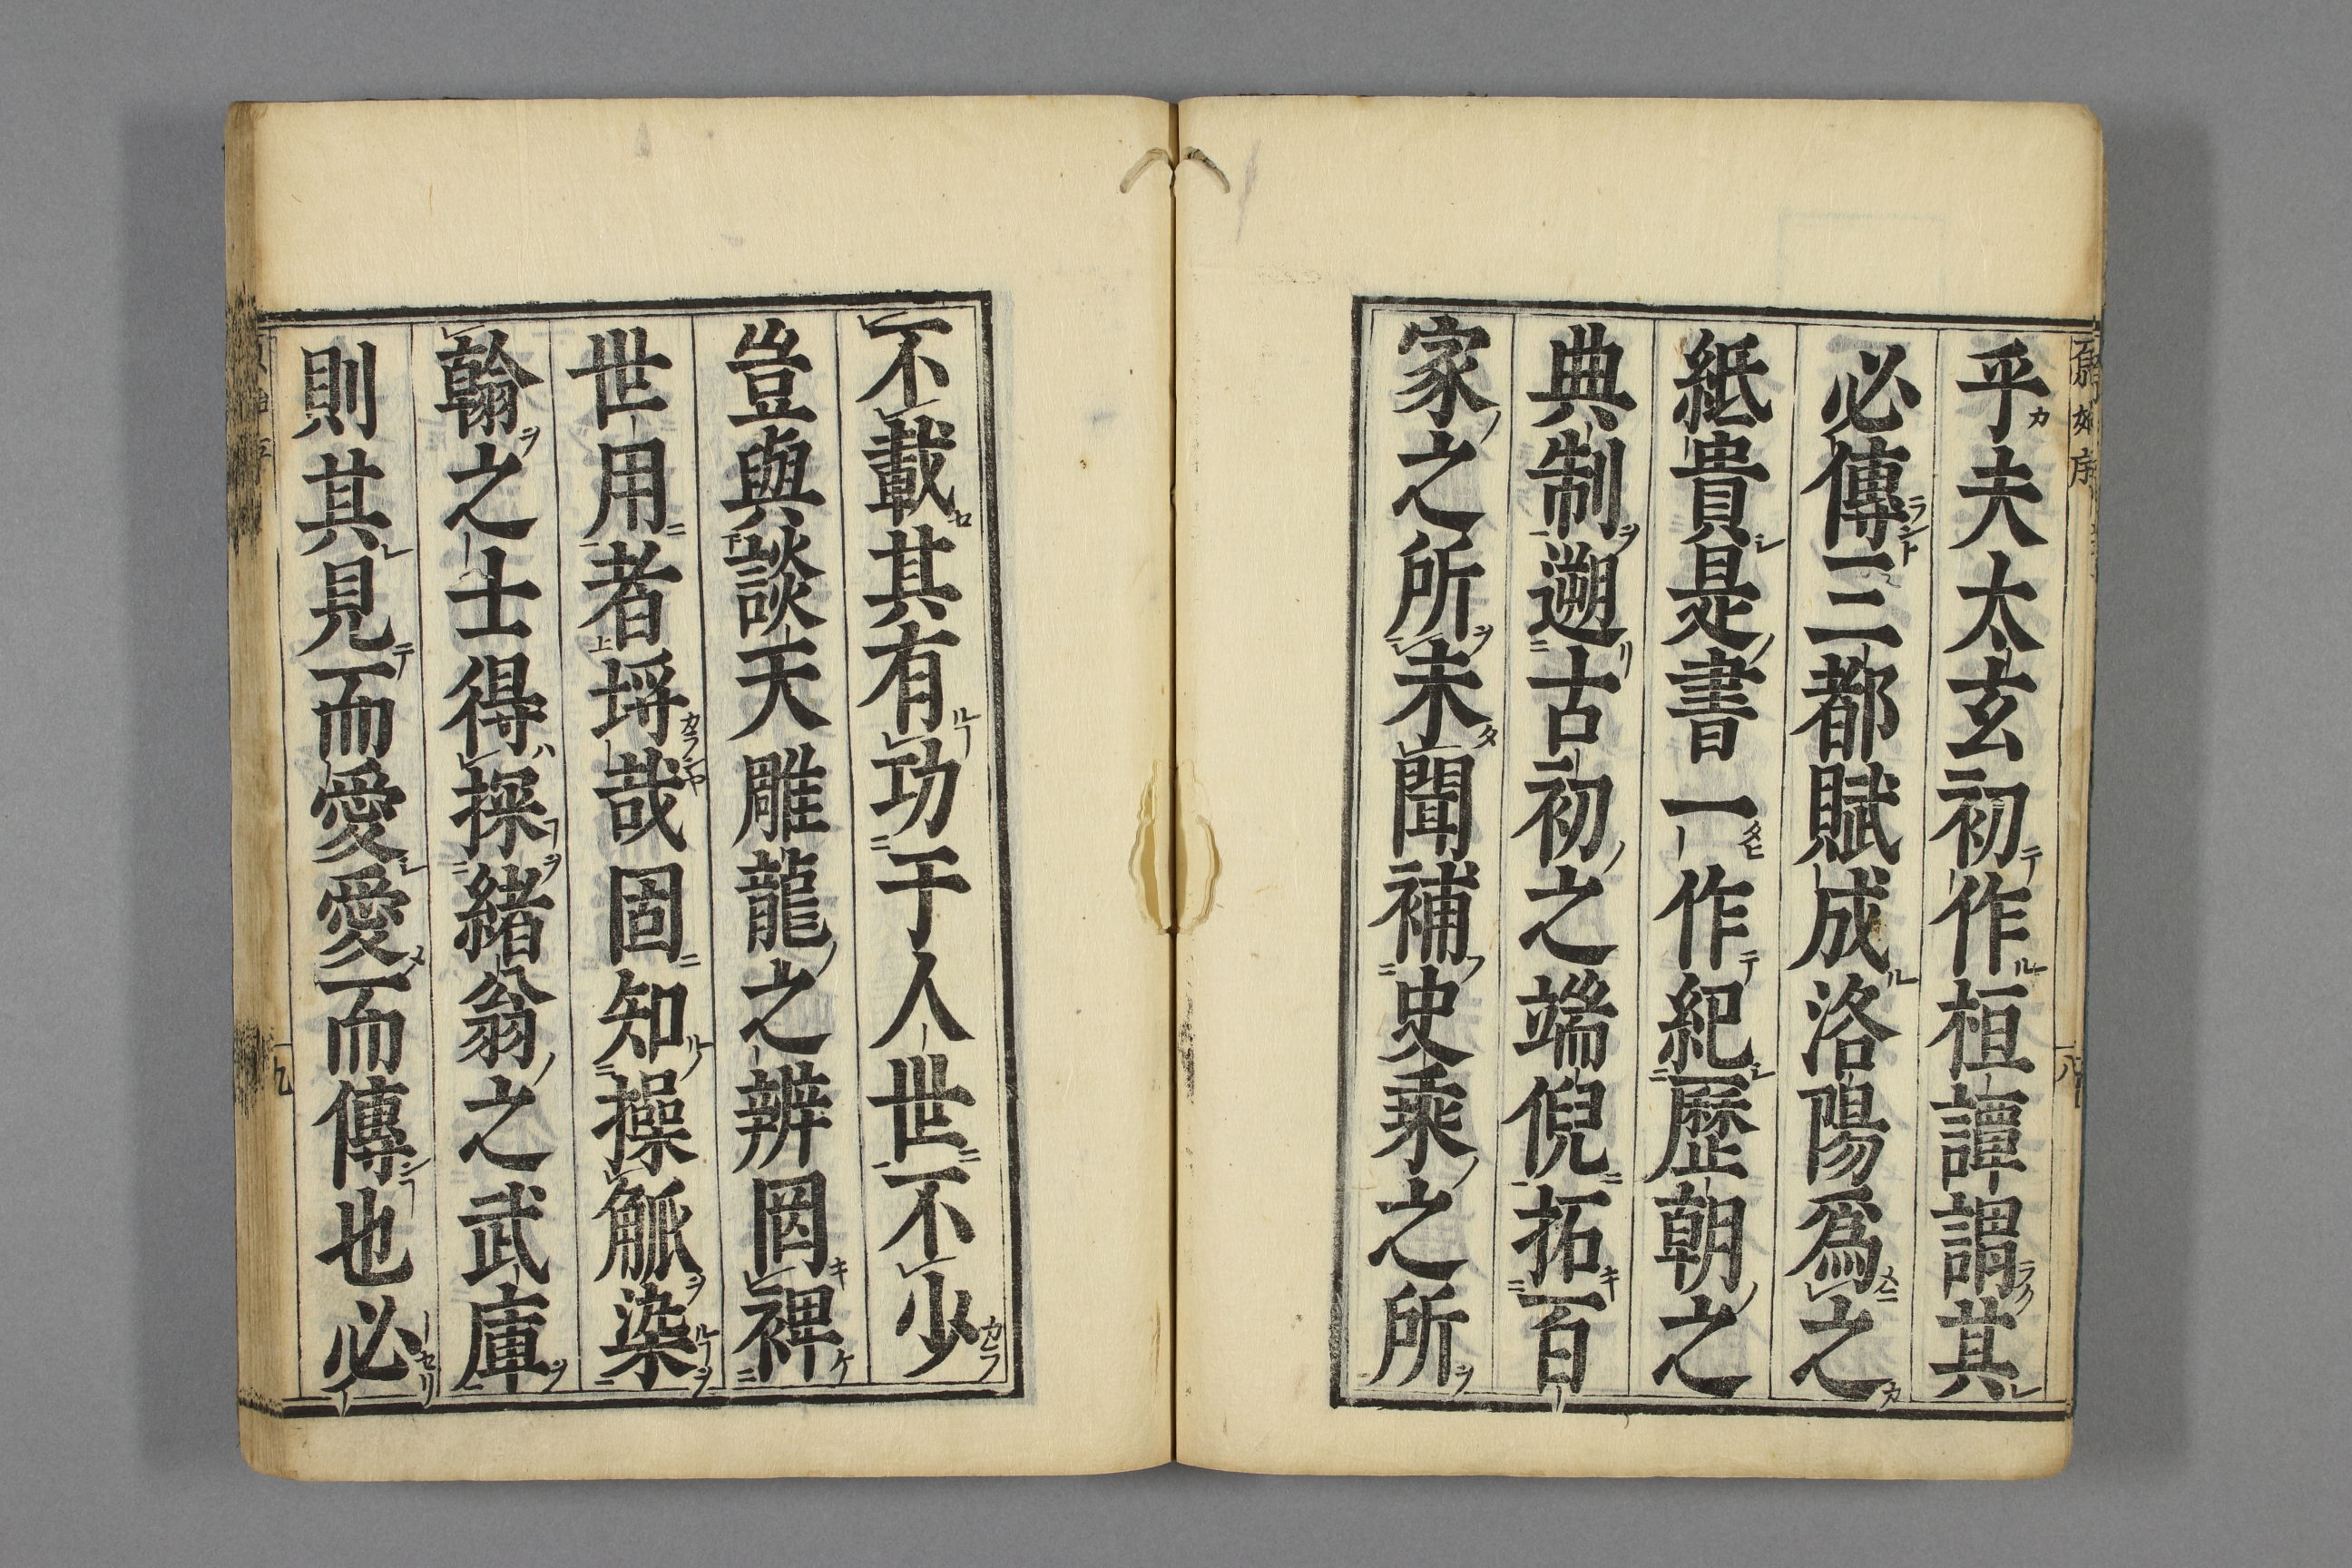 乎夫太玄初作桓譚謂其
必傳三都賦成洛陽爲之
紙貴是書一作紀歷朝之
典制遡古初之端倪拓百
家之所未聞補史乘之所
不載其有功于人世不少
豈與談天雕龍之辨罔裨
世用者埒哉固知操觚染
翰之士得探緒翁之武庫
則其見而愛愛而傳也必